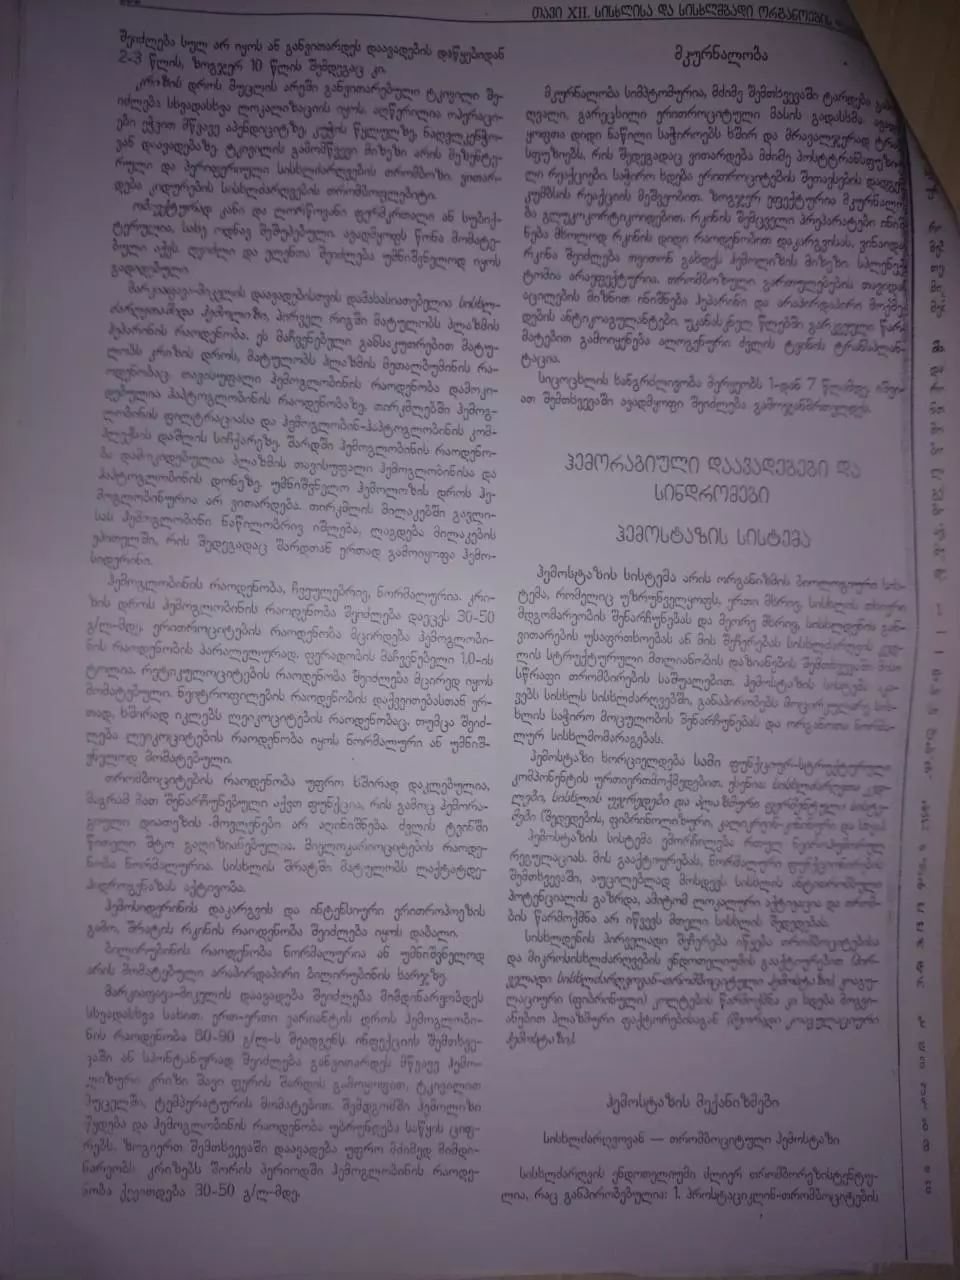 თავი XII. სისხლისა და სისხლმბადი ორგანოების
შეიძლება სულ არ იყოს ან განვითარდეს დაავადების დაწყებიდან
2-3 წლის, ზოგჯერ 10 წლის შემდეგაც კი.
კრიზის დროს მუცლის არეში განვითარებული ტკივილი შე-
იძლება სხვადასხვა ლოკალიზაციის იყოს. აღწერილია ოპერაცი-
ები ეჭვით მწვავე აპენდიციტზე, კუჭის წყლულზე, ნაღველკენჭო-
ვან დაავადებაზე. ტკივილის გამომწვევი მიზეზი არის მეზენტე-
რული და პერიფერიული სისხლძარღვების თრომბოზი. ვითარ-
დება კიდურების სისხლძარღვების თრომბოფლებიტი.
ობიექტურად კანი და ლორწოვანი ფერმკრთალი ან სუბიქ-
ტერულია, სახე ოდნავ შეშუპებული. ავადმყოფს წონა მომატე-
ბული აქვს. ღვიძლი და ელენთა შეიძლება უმნიშვნელოდ იყოს
გადიდებული.
მარკიაფავა-მიკელის დაავადებისთვის დამახასიათებელია სისხლ-
ძარღვთაშიდა ჰემოლიზი, პირველ რიგში მატულობს პლაზმის
ჰეპარინის რაოდენობა. ეს მაჩვენებელი განსაკუთრებით მატუ-
ლობს კრიზის დროს, მატულობს პლაზმის მეთალბუმინის რა-
ოდენობაც. თავისუფალი ჰემოგლობინის რაოდენობა დამოკი-
დებულია ჰაპტოგლობინის რაოდენობაზე, თირკმლებში ჰემოგ-
ლობინის ფილტრაციასა და ჰემოგლობინ-ჰაპტოგლობინის კომ-
პლექსის დაშლის სიჩქარეზე. შარდში ჰემოგლობინის რაოდენო-
ბა დამოკიდებულია პლაზმის თავისუფალი ჰემოგლობინისა და
ჰაპტოგლობინის დონეზე. უმნიშვნელო ჰემოლიზის დროს ჰე-
მოგლობინურია არ ვითარდება. თირკმლის მილაკებში გავლი-
სას ჰემოგლობინი ნაწილობრივ იშლება, ლაგდება მილაკების
ეპითელში, რის შედეგადაც შარდთან ერთად გამოიყოფა ჰემო-
სიდერინი.
ჰემოგლობინის რაოდენობა, ჩვეულებრივ, ნორმალურია. კრი-
ზის დროს ჰემოგლობინის რაოდენობა შეიძლება დაეცეს 30-50
გ/ლ-მდე. ერითროციტების რაოდენობა მცირდება ჰემოგლობი-
ნის რაოდენობის პარალელურად, ფერადობის მაჩვენებელი 1,0-ის
ტოლია. რეტიკულოციტების რაოდენობა შეიძლება მცირედ იყოს
მომატებული. ნეიტროფილების რაოდენობის დაქვეითებასთან ერ-
თად, ხშირად იკლებს ლეიკოციტების რაოდენობაც, თუმცა შეიძ-
ლება ლეიკოციტების რაოდენობა იყოს ნორმალური ან უმნიშ-
ვნელოდ მომატებული.
თრომბოციტების რაოდენობა უფრო ხშირად დაკლებულია,
მაგრამ მათ შენარჩუნებული აქვთ ფუნქცია, რის გამოც ჰემორა-
გიული დიათეზის მოვლენები არ აღინიშნება. ძვლის ტვინში
წითელი შტო გაღიზიანებულია. მიელოკარიოციტების რაოდე-
ნობა ნორმალურია. სისხლის შრატში მატულობს ლაქტატდე-
ჰიდროგენაზას აქტივობა.
ჰემოსიდერინის დაკარგვის და ინტენსიური ერითროპოეზის
გამო, შრატის რკინის რაოდენობა შეიძლება იყოს დაბალი.
ბილირუბინის რაოდენობა ნორმალურია ან უმნიშვნელოდ
არის მომატებული არაპირდაპირი ბილირუბინის ხარჯზე.
მარკიაფავა-მიკელის დაავადება შეიძლება მიმდინარეობდეს
სხვადასხვა სახით. ერთ-ერთი ვარიანტის დროს ჰემოგლობი-
ნის რაოდენობა 80-90 გ/ლ-ს შეადგენს. ინფექციის შემთხვე-
ვაში ან სპონტანურად შეიძლება განვითარდეს მწვავე ჰემო-
ლიზური კრიზი შავი ფერის შარდის გამოყოფით, ტკივილით
მუცელში, ტემპერატურის მომატებით. შემდგომში ჰემოლიზი
წყდება და ჰემოგლობინის რაოდენობა უბრუნდება საწყის ციფ-
რებს. ზოგიერთ შემთხვევაში დაავადება უფრო მძიმედ მიმდი-
ნარეობს: კრიზებს შორის პერიოდში ჰემოგლობინის რაოდე-
ნობა ქვეითდება 30-50 გ/ლ-მდე.
მკურნალობა
მკურნალობა სიმპტომურია, მძიმე შემთხვევაში ტარდება
ღვალი, გარეცხილი ერითროციტული მასის გადასხმა.
ყოფთა დიდი ნაწილი საჭიროებს ხშირ და მრავალჯერად ტრა
სფუზიებს, რის შედეგადაც ვითარდება მძიმე პოსტტრანსფუზი
ლი რეაქციები. საჭირო ხდება ერითროციტების შეთავსების დადგე
კუმბსის რეაქციის მეშვეობით. ზოგჯერ ეფექტურია მკურნალო
ბა გლუკოკორტიკოიდებით. რკინის შემცველი პრეპარატები ინიშ
ნება მხოლოდ რკინის დიდი რაოდენობით დაკარგვისას, ვინაიდა
რკინა შეიძლება თვითონ გახდეს ჰემოლიზის მიზეზი. სპლენექ
ტომია არაეფექტურია. თრომბოზული გართულებების თავიდა
აცილების მიზნით ინიშნება ჰეპარინი და არაპირდაპირი მოქმე
დების ანტიკოაგულანტები. უკანასკნელ წლებში გარკვეული წარ-
მატებით გამოიყენება ალოგენური ძვლის ტვინის ტრანსპლან-
ტაცია.
სიცოცხლის ხანგრძლივობა მერყეობს 1-დან 7 წლამდე. იშვი-
ათ შემთხვევაში ავადმყოფი შეიძლება გამოჯანმრთელდეს.
ჰემორაგიული დაავადებები და
სინდრომები
ჰემოსტაზის სისტემა
ჰემოსტაზის სისტემა არის ორგანიზმის ბიოლოგიური სის-
ტემა, რომელიც უზრუნველყოფს, ერთი მხრივ, სისხლის თხიერი
მდგომარეობის შენარჩუნებას და მეორე მხრივ, სისხლდენის გან-
ვითარების უსაფრთხოებას ან მის შეჩერებას სისხლძარღვის კედ-
ლის სტრუქტურული მთლიანობის დაზიანების შემთხვევაში მისი
სწრაფი თრომბირების საშუალებით. ჰემოსტაზის სისტემა
ვებს სისხლს სისხლძარღვებში, განაპირობებს მოცირკულირე სის-
ხლის საჭირო მოცულობის შენარჩუნებას და ორგანოთა ნორმა-
ლურ სისხლმომარაგებას.
ჰემოსტაზი ხორციელდება სამი ფუნქციურ-სტრუქტურული
კომპონენტის ურთიერთმოქმედებით. ესენია: სისხლძარღვთა კედ-
ლები, სისხლის უჯრედები და პლაზმური ფერმენტული სისტე-
მები (შედედების, ფიბრინოლიზური, კალიკრეინ-კინინური და სხვა).
ჰემოსტაზის სისტემა ემორჩილება რთულ ნეიროჰუმორულ
რეგულაციას. მის გააქტიურებას, ნორმალური ფუნქციონირების
შემთხვევაში, აუცილებლად მოსდევს სისხლის ანტითრომბული
პოტენციალის გაზრდა, ამიტომ ლოკალური აქტივაცია და თრომ-
ბის წარმოქმნა არ იწვევს მთელი სისხლის შედედებას.
სისხლდენის პირველადი შეჩერება იწყება თრომბოციტებისა
და მიკროსისხლძარღვების ენდოთელიუმის გააქტიურებით (პირ-
ველადი სისხლძარღვოვან-თრომბოციტული ჰემოსტაზი). კოაგუ-
ლაციური (ფიბრინული) კოლტების წარმოქმნა კი ხდება მოგვი-
ანებით პლაზმური ფაქტორებისაგან (მეორადი კოაგულაციური
ჰემოსტაზი).
ჰემოსტაზის მექანიზმები
სისხლძარღვოვან — თრომბოციტული ჰემოსტაზი
სისხლძარღვის ენდოთელიუმი ძლიერ თრომბორეზისტენტუ-
ლია, რაც განპირობებულია: 1. პროსტაციკლინ-თრომბოციტების